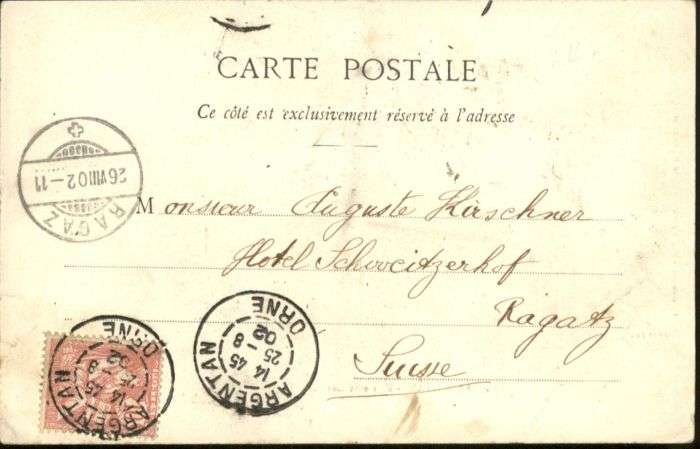 CARTE POSTALE
Ce côté est exclusivement réservé à l'adresse
RAGAZ
26.VIII.02-11
Monsieur Auguste Kirschner
Hotel Schweitzerhof
Ragatz
Suisse
ARGENTAN
14 45
25 - 8
02
ORNE
ARGENTAN
14 45
25 - 8
02
ORNE